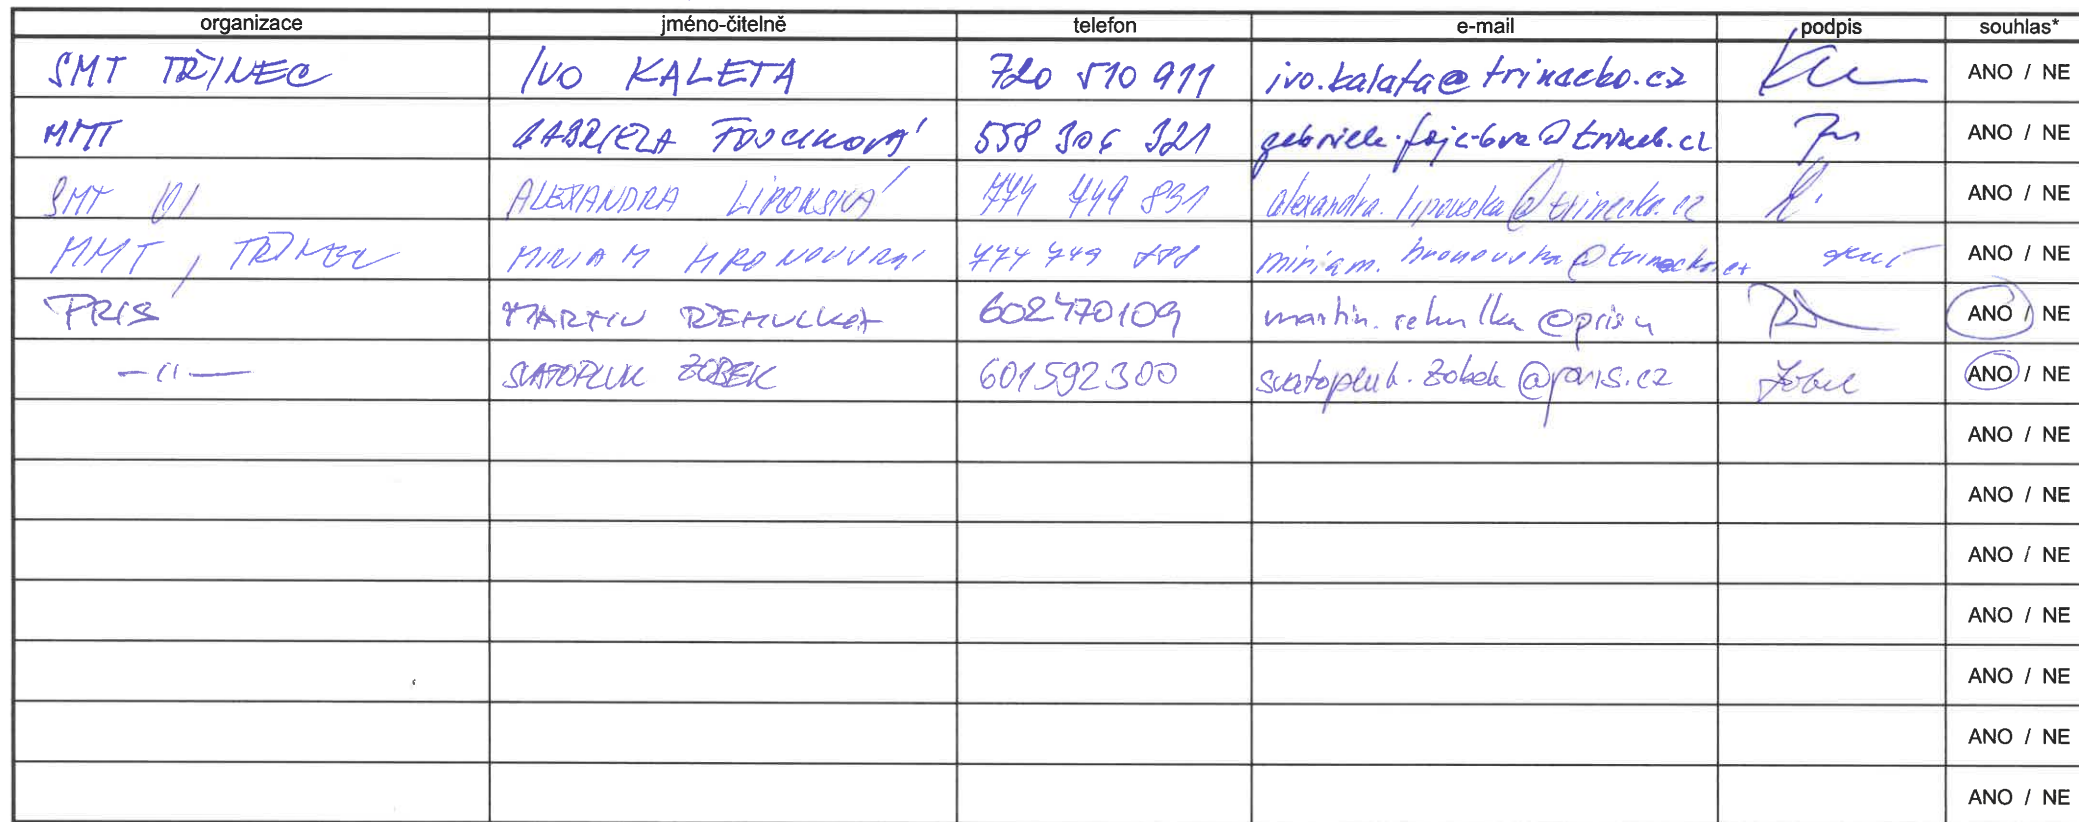 organizace jméno-čitelně telefon e-mail podpis souhlas*
SMT TŘINEC IVO KALETA 720 510 911 ivo.kaleta@trinecko.cz ANO / NE
MMT GABRIELA 558 306 321 ANO / NE
SMT ALEXANDRA LIPOWSKÁ 774 749 831 alexandra.lipowska@trinecko.cz ANO / NE
MMT, TŘINEC MIRIAM HRONOVSKÁ 774 749 miriam.hronovska@trinecko.cz ANO / NE
PRIS MARTIN ŘEHULKA 602470109 martin.rehulka@pris.cz ANO / NE
-〃- SVATOPLUK ZOBEK 601592300 svatopluk.zobek@pris.cz Zobek ANO / NE
ANO / NE
ANO / NE
ANO / NE
ANO / NE
ANO / NE
ANO / NE
ANO / NE